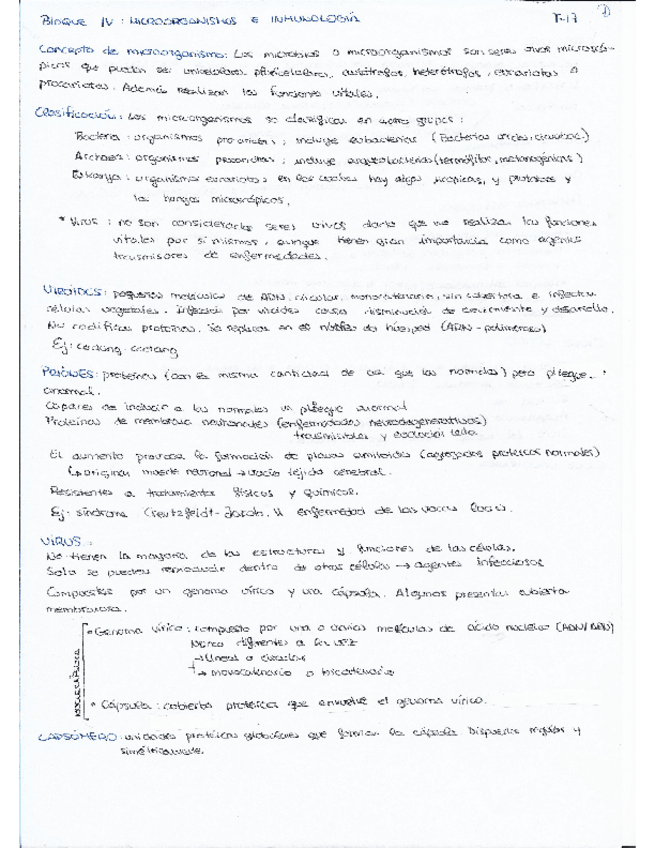 BLOQUE IV: MICROORGANISMOS E INMUNOLOGÍA T-17 1
Concepto de microorganismo: Los microbios o microorganismos son seres vivos microscó-
picos que pueden ser unicelulares, pluricelulares, autótrofos, heterótrofos, eucariotas o
procariotas. Además realizan las funciones vitales.
Clasificación: Los microorganismos se clasifican en grupos:
Bacteria: organismos procariotas; incluye eubacterias (Bacterias
Archaea: organismos procariotas; incluye arqueobacterias (termófilas, metanogénicas)
Eukarya: organismos eucariotas en los cuales hay algas y protozoos y
los hongos microscópicos.
* Virus: no son considerados seres vivos dado que no realizan las funciones
vitales por si mismos, aunque tienen gran importancia como agentes
transmisores de enfermedades.
VIROIDES: pequeñas moléculas de ARN, circular, monocatenario, sin cubiertura e infectan
células vegetales. Infección por viroides causa disminución de crecimiento y desarrollo.
No codifican proteínas. Se replican en el núcleo de huésped (ARN-polimerasa)
Ej: cadang-cadang
PRIONES: proteínas (con la misma cantidad de aa que las normales) pero pliegue
anormal.
Capaces de inducir a las normales un pliegue anormal
Proteínas de membrana neuronales (enfermedades neurodegenerativas)
transmisibles y evolución lenta
El aumento provoca la formación de placas amiloides (agregados proteicos normales)
origina muerte neuronal → vacío tejido cerebral.
Resistentes a tratamientos físicos y químicos.
Ej: síndrome Creutzfeldt-Jacob, enfermedad de las vacas locas.
VIRUS:
No tienen la mayoría de las estructuras y funciones de las células.
Solo se pueden reproducir dentro de otras células → agentes infecciosos
Compuestos por un genoma vírico y una cápsula. Algunos presentan cubierta
membranosa.
NUCLEOCÁPSIDA
• Genoma vírico: compuesto por una o varias moléculas de ácido nucleico (ADN/ARN)
Nunca diferentes a la vez
→ Lineal o circular
→ monocatenario o bicatenario
• Cápsula: cubierta proteica que envuelve el genoma vírico.
CAPSÓMERO: unidades proteicas globulares que forman la cápsula. Dispuestas regular y
simétricamente.